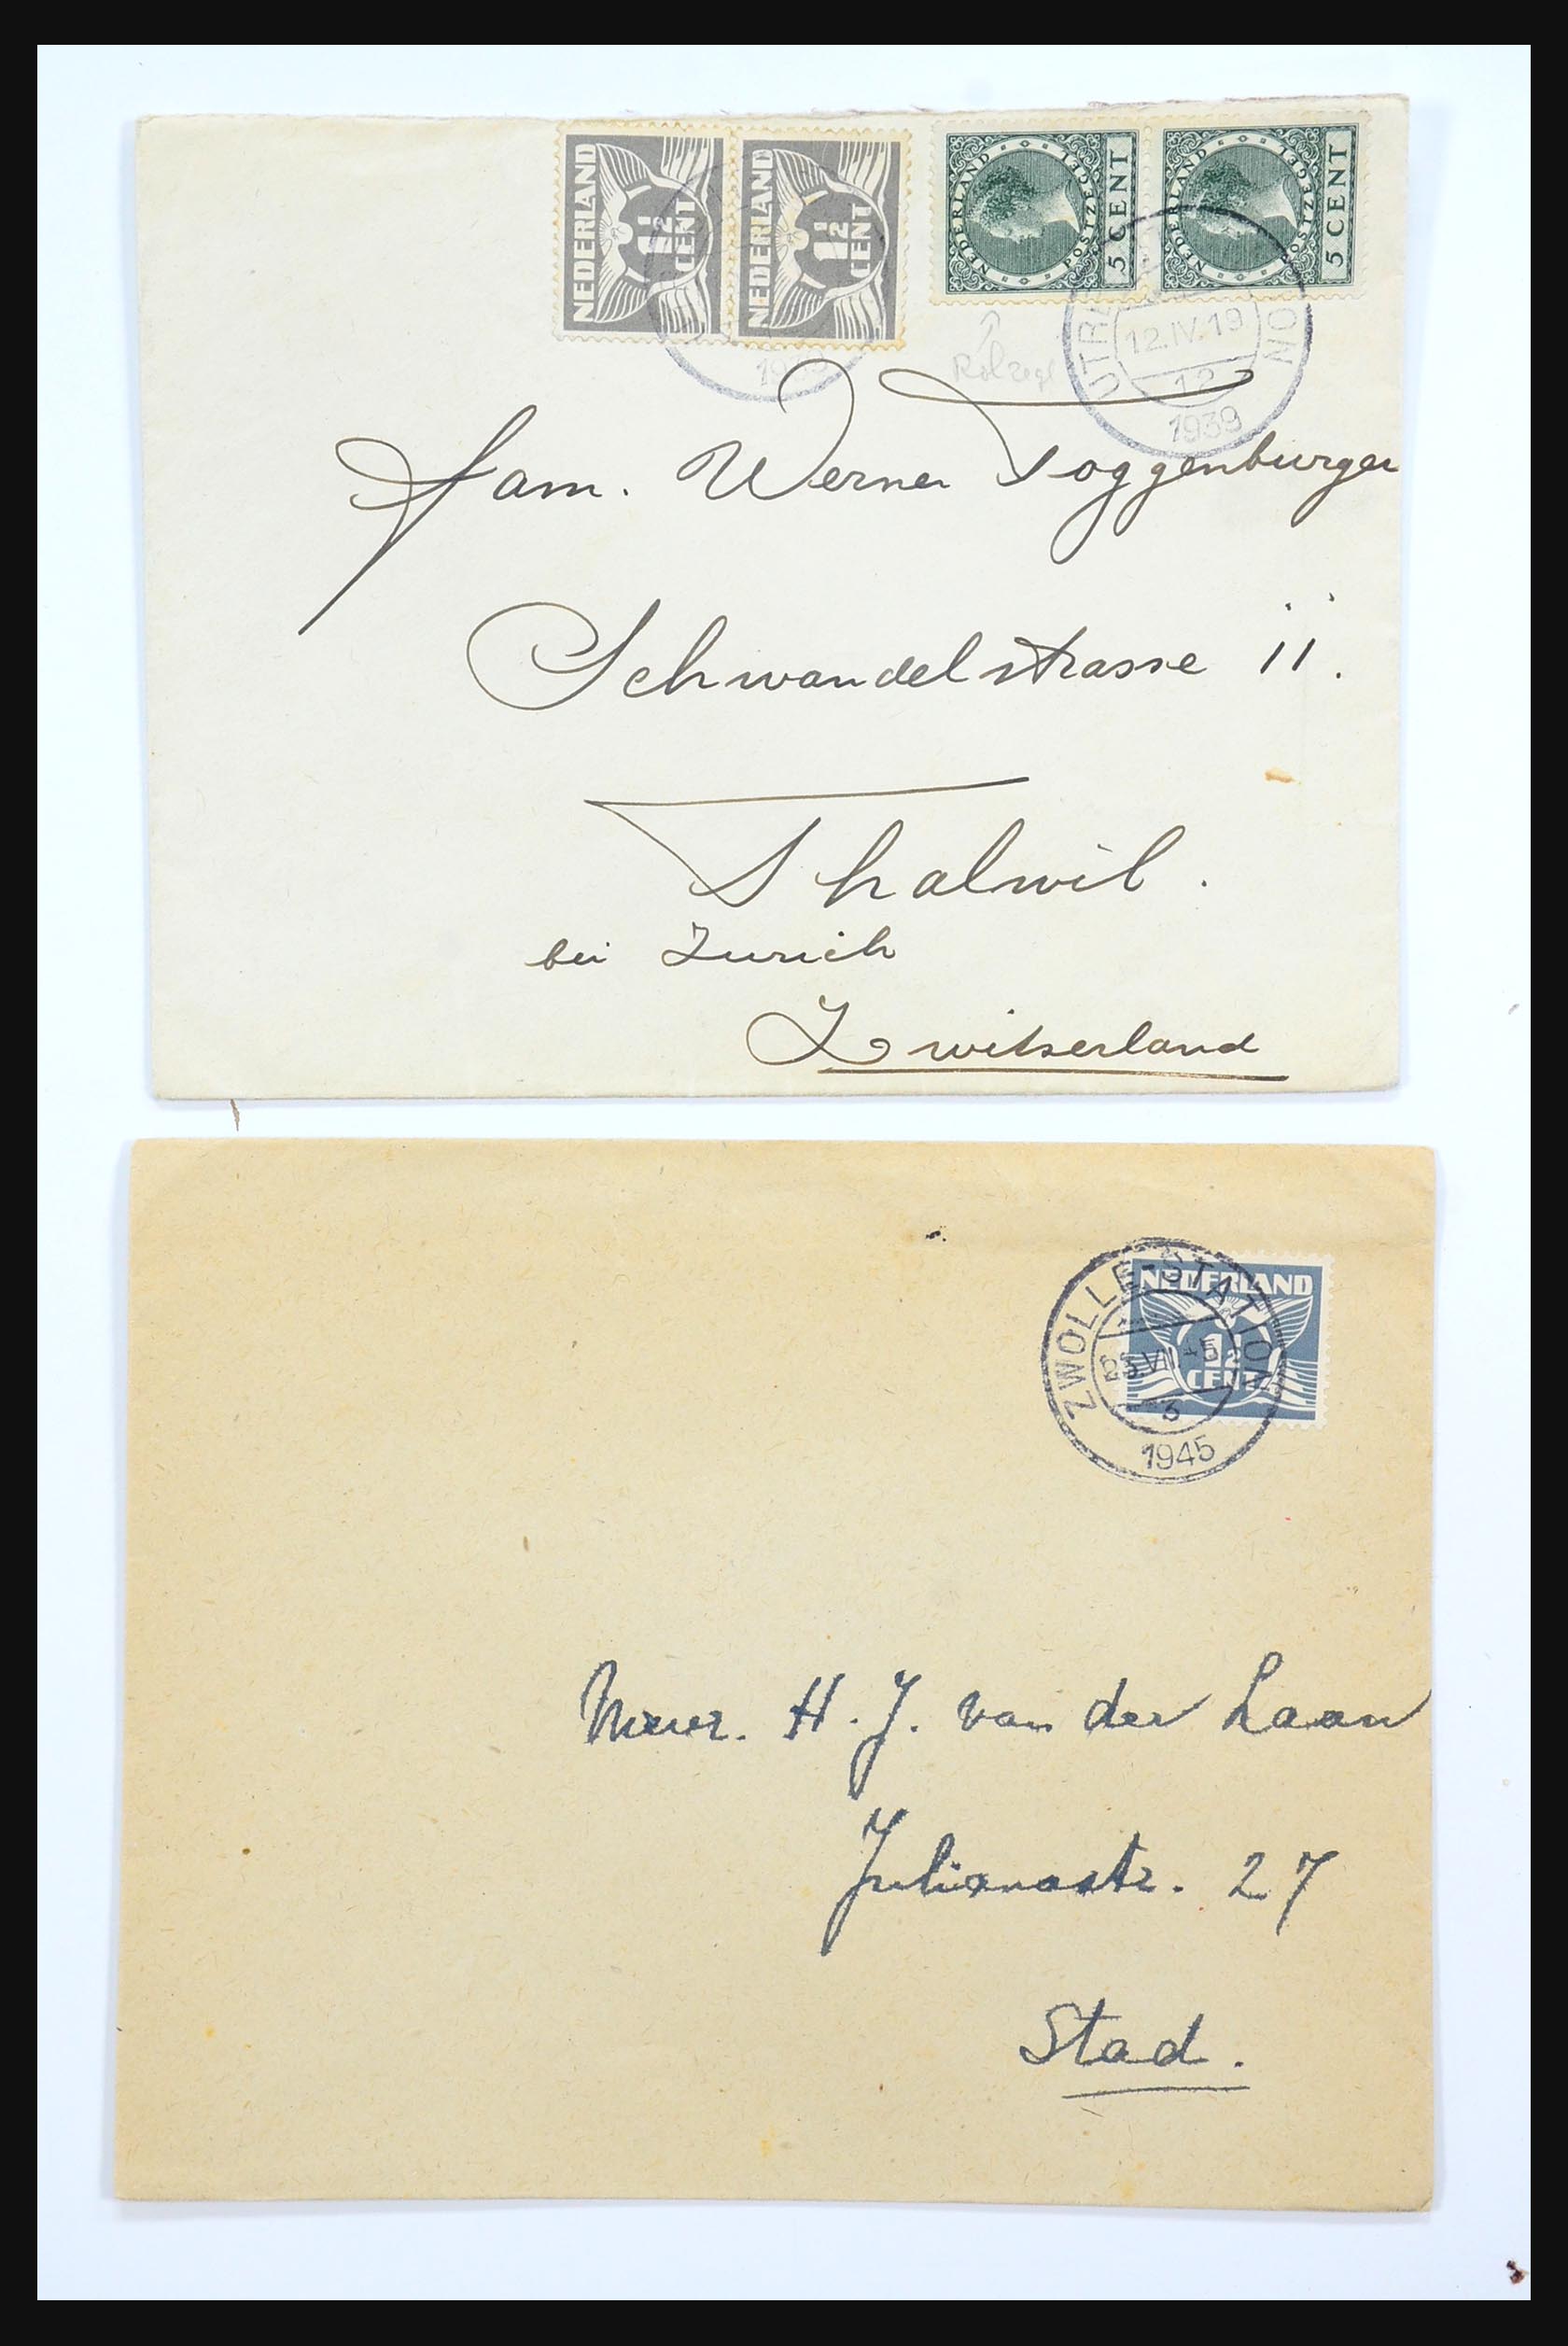 NEDERLAND
1½
CENT
NEDERLAND
1½
CENT
NEDERLAND POSTZEGEL
5 CENT
NEDERLAND POSTZEGEL
5 CENT
12.IV.19
12
1939
Rolzegel
Fam. Werner Toggenburger
Schwandelstrasse 11.
Thalwil.
bei Zurich
Zwitserland
NEDERLAND
1½
CENT
ZWOLLE-STATION
3
1945
Mevr. H. J. van der Laan
Julianastr. 27
Stad.